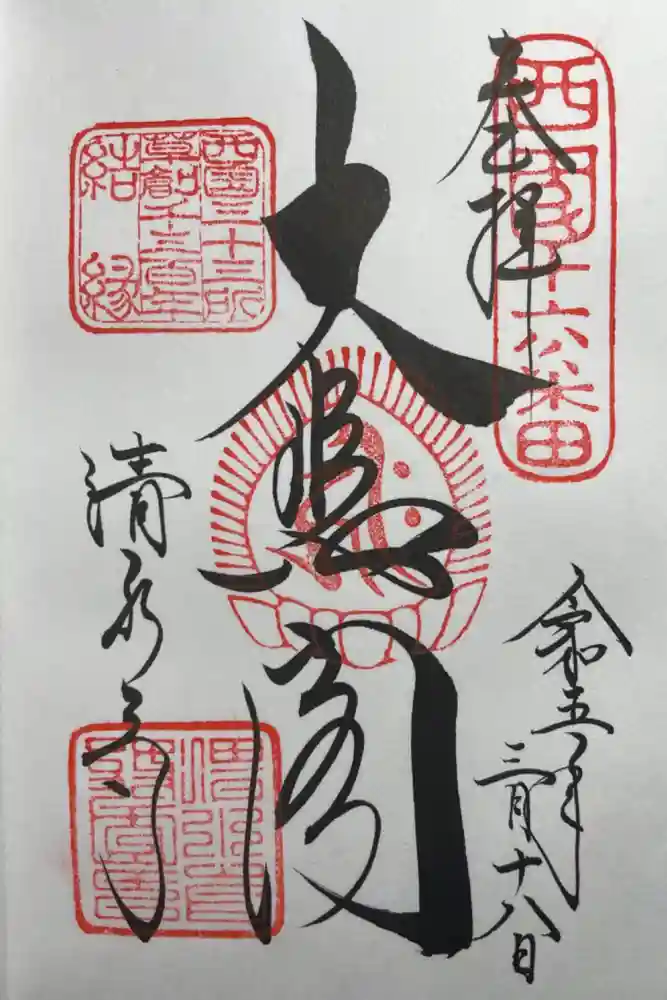 奉拝
西國十六番
令和五年
三月十八日
大悲閣
西國三十三所
草創千三百年
結縁
清水寺